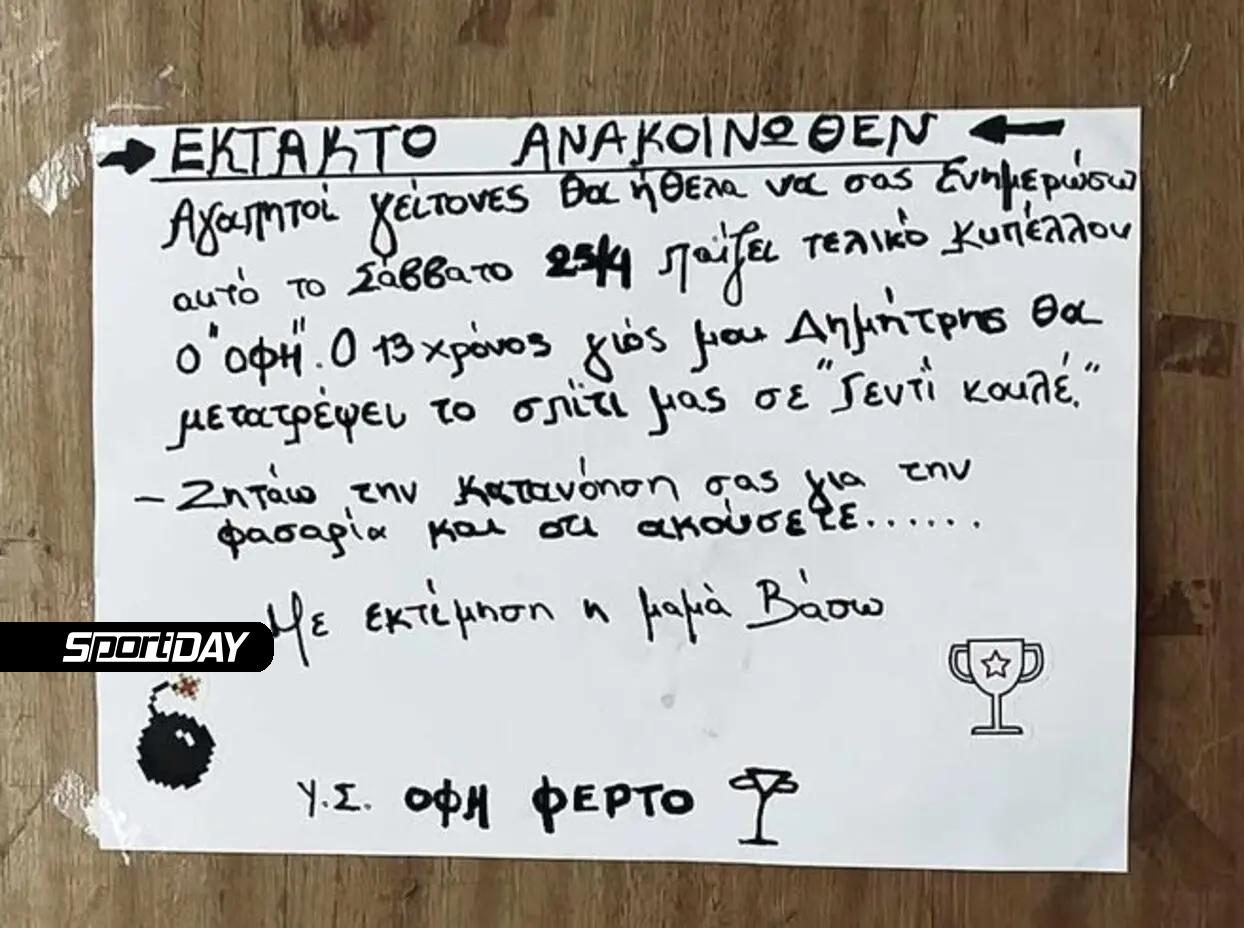 ΕΚΤΑΚΤΟ ΑΝΑΚΟΙΝΩΘΕΝ
Αγαπητοί γείτονες θα ήθελα να σας ενημερώσω
αυτό το Σάββατο 25/4 παίζει τελικό κυπέλλου
ο "ΟΦΗ". Ο 13χρόνος γιός μου Δημήτρης θα
μετατρέψει το σπίτι μας σε "Γεντί κουλέ."
- Ζητάω την κατανόηση σας για την
φασαρία και οτι ακούσετε......
Με εκτίμηση η μαμά Βάσω
SportDAY
Υ.Σ. ΟΦΗ ΦΕΡΤΟ